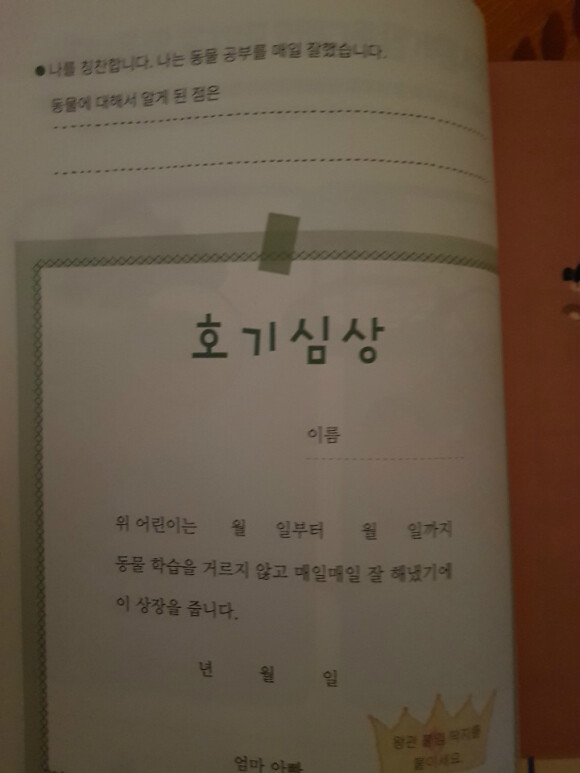 나를 칭찬합니다. 나는 동물 공부를 매일 잘했습니다.
동물에 대해서 알게 된 점은
호기심상
이름
위 어린이는 월 일부터 월 일까지
동물 학습을 거르지 않고 매일매일 잘 해냈기에
이 상장을 줍니다.
년 월 일
왕관 붙임 딱지를
붙이세요
엄마 아빠